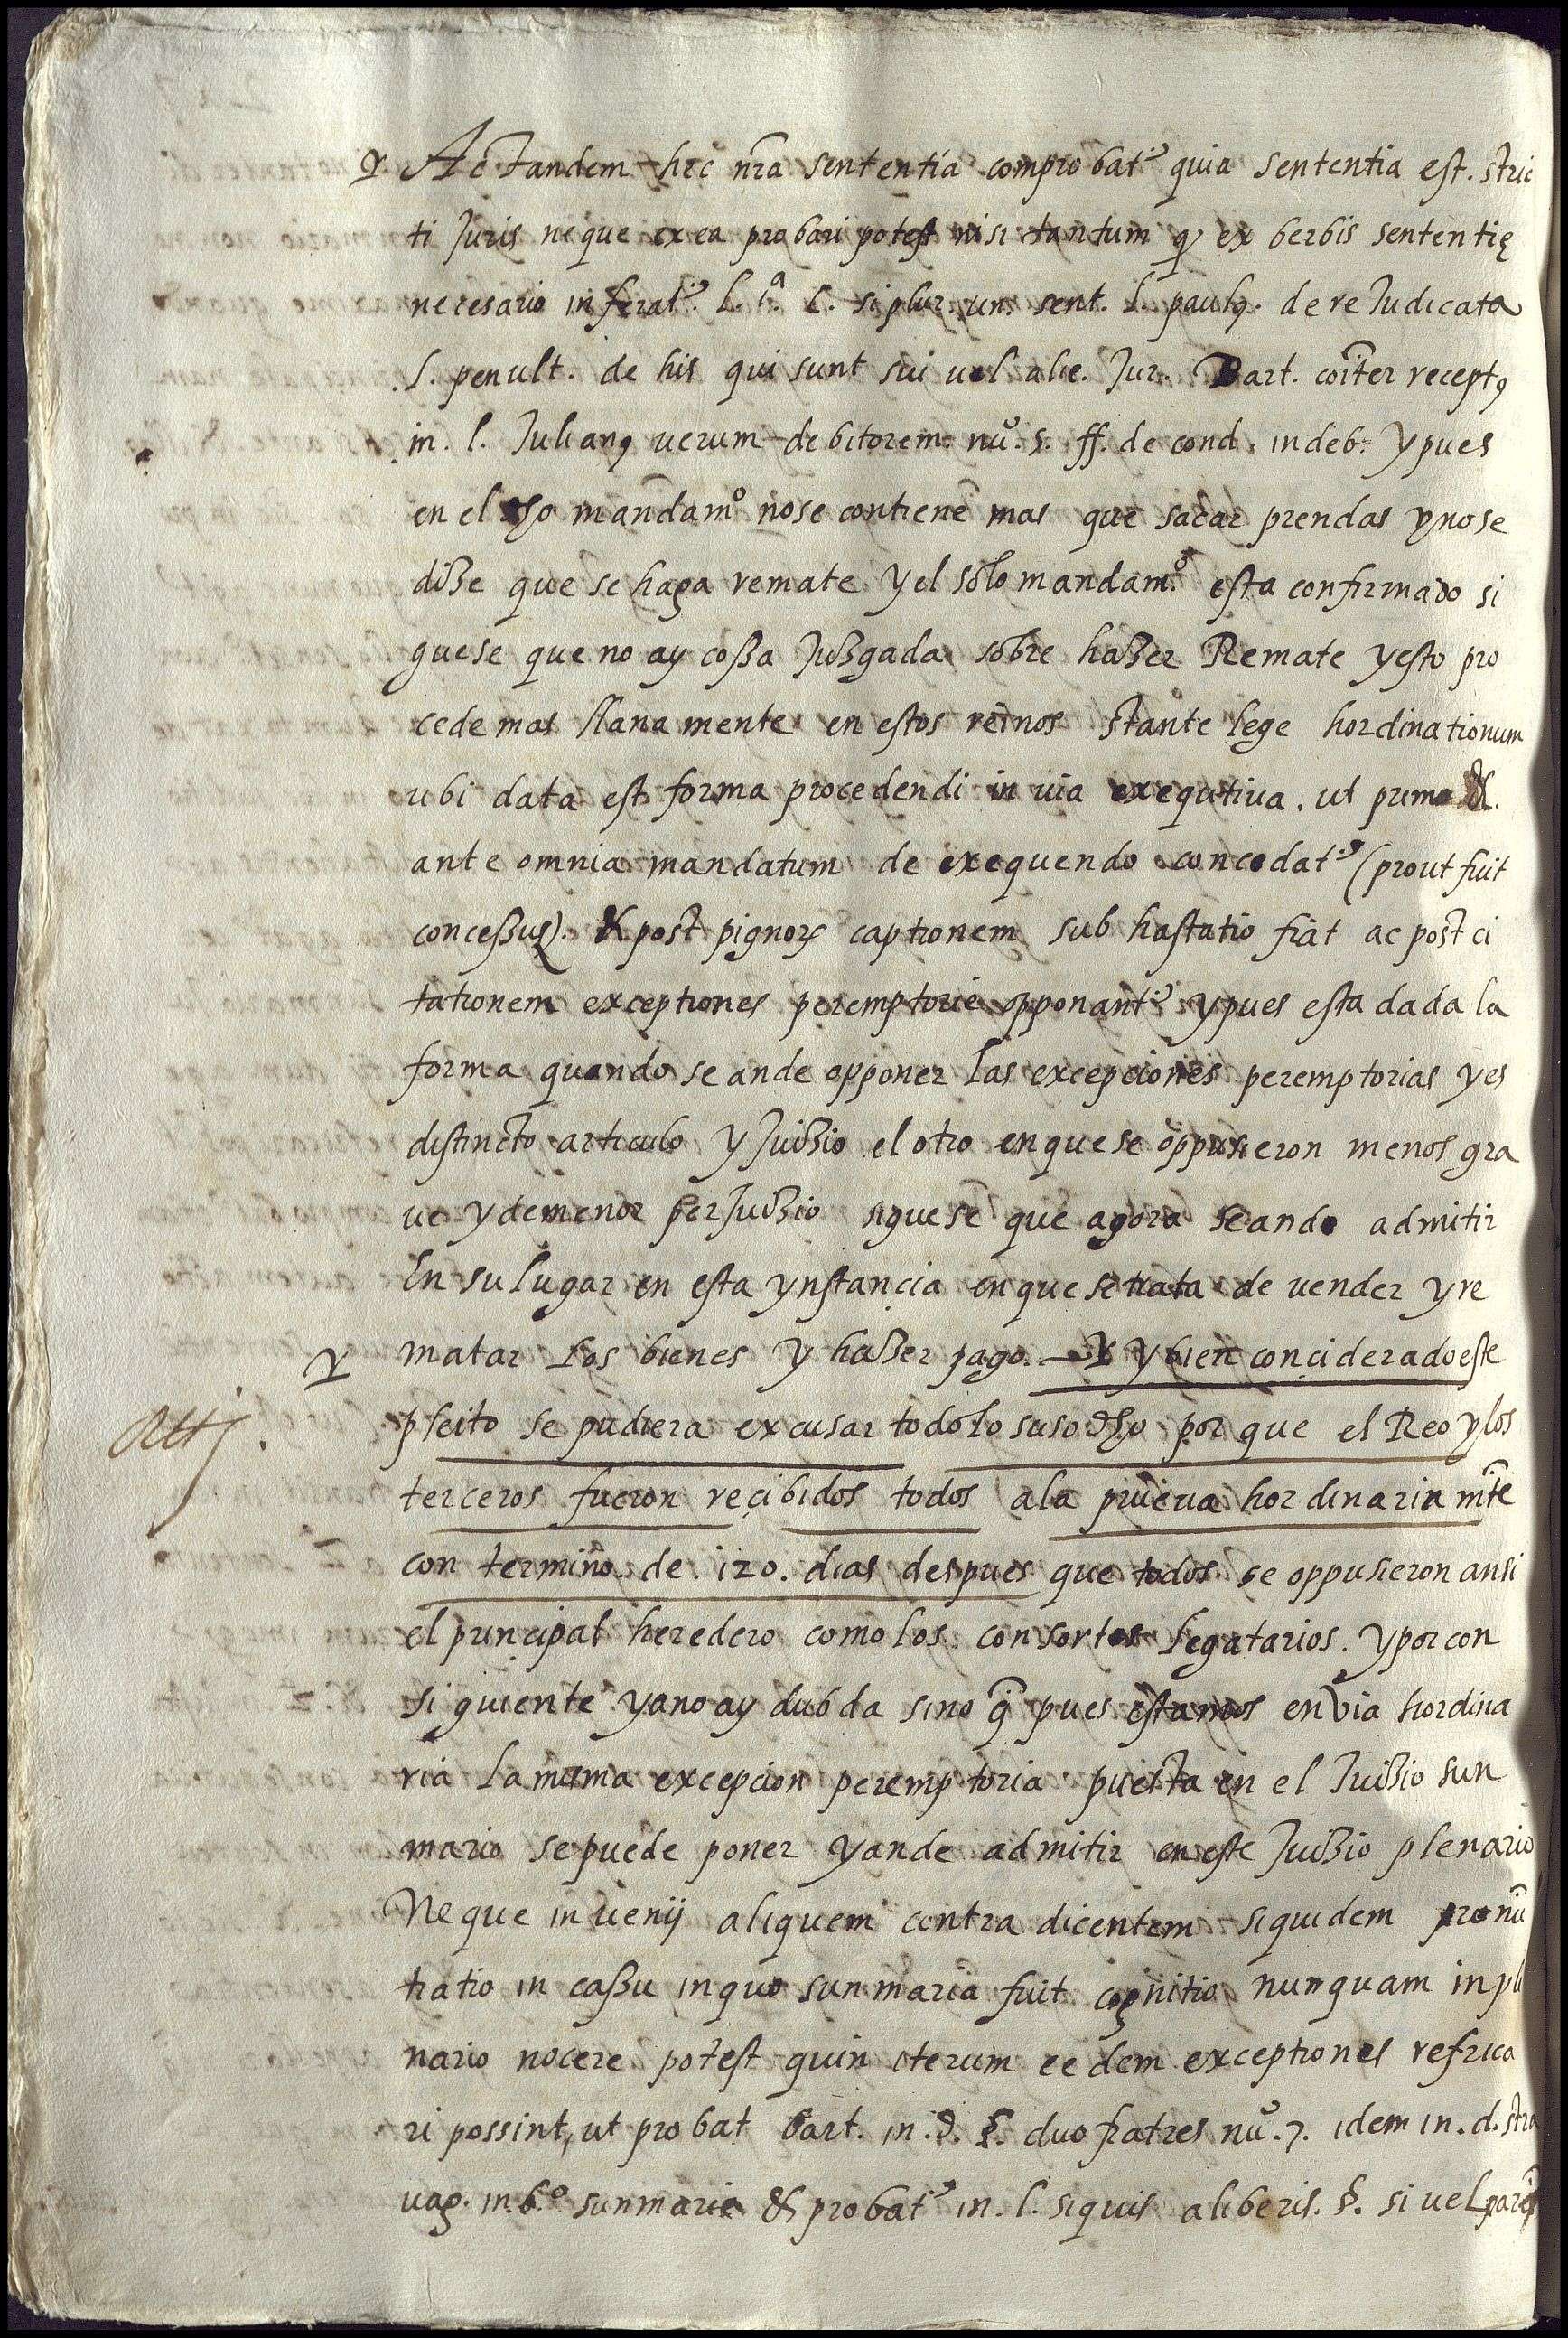 Ac tandem hec nr̃a sententia comprobatr quia sententia est. stric
ti Juris neque ex ea probari potest nisi tantum q̃ ex berbis sententię
necesario inferatr. l. 1ª C. si plur. un. sent. l. paulꝯ. de re Judicata
l. penult. de his qui sunt sui uel alie. Jur. Bart. coiter receptꝯ
in. l. Julianꝯ uerum debitorem. nũ. 5. ff. de cond. indeb. y pues
en el dho mandamº no se contiene mas que sacar prendas y no se
dize que se haga remate y el solo mandamº esta confirmado si
guese que no ay cossa Juzgada sobre hazer Remate y esto pro
cede mas llana mente en estos reinos stante lege hordinationum
ubi data est forma procedendi in uia exequtiua. ut primo &
ante omnia mandatum de exequendo concedatr (prout fuit
concessus). & post pignorꝝ captionem sub hastatio fiat ac post ci
tationem exceptiones peremptorie opponantr y pues esta dada la
forma quando se an de opponer las excepciones peremptorias y es
distincto articulo y Juizio el otro en que se oppusieron menos gra
ue y de menor perJuizio siguese que agora se an de admitir
En su lugar en esta ynstançia en que se trata de uender y re
matar los bienes y hazer pago. — Y bien conçiderado este
attj.
pleito se pudiera excusar todo lo suso dho por que el Reo y los
terceros fueron reçibidos todos a la prueua hordinaria mẽte
con termino de. 120. dias despues que todos se oppusieron ansi
el principal heredero como los consortes legatarios. y por con
siguiente ya no ay dubda sino q̃ pues estamos en via hordina
ria la misma excepcion peremptoria puesta en el Juizio sun
mario se puede poner y an de admitir en este Juizio plenario
Neque inuenij aliquem contra dicentem siquidem pronũ
tiatio in cassu in quo sunmaria fuit cognitio nunquam in ple
nario nocere potest quin iterum eedem exceptiones refrica
ri possint, ut probat bart. in. d. §. duo fratres nũ. 7. idem in. d. stra
uag. in bº sunmarie & probatr in. l. siquis a liberis. §. si uel parẽs